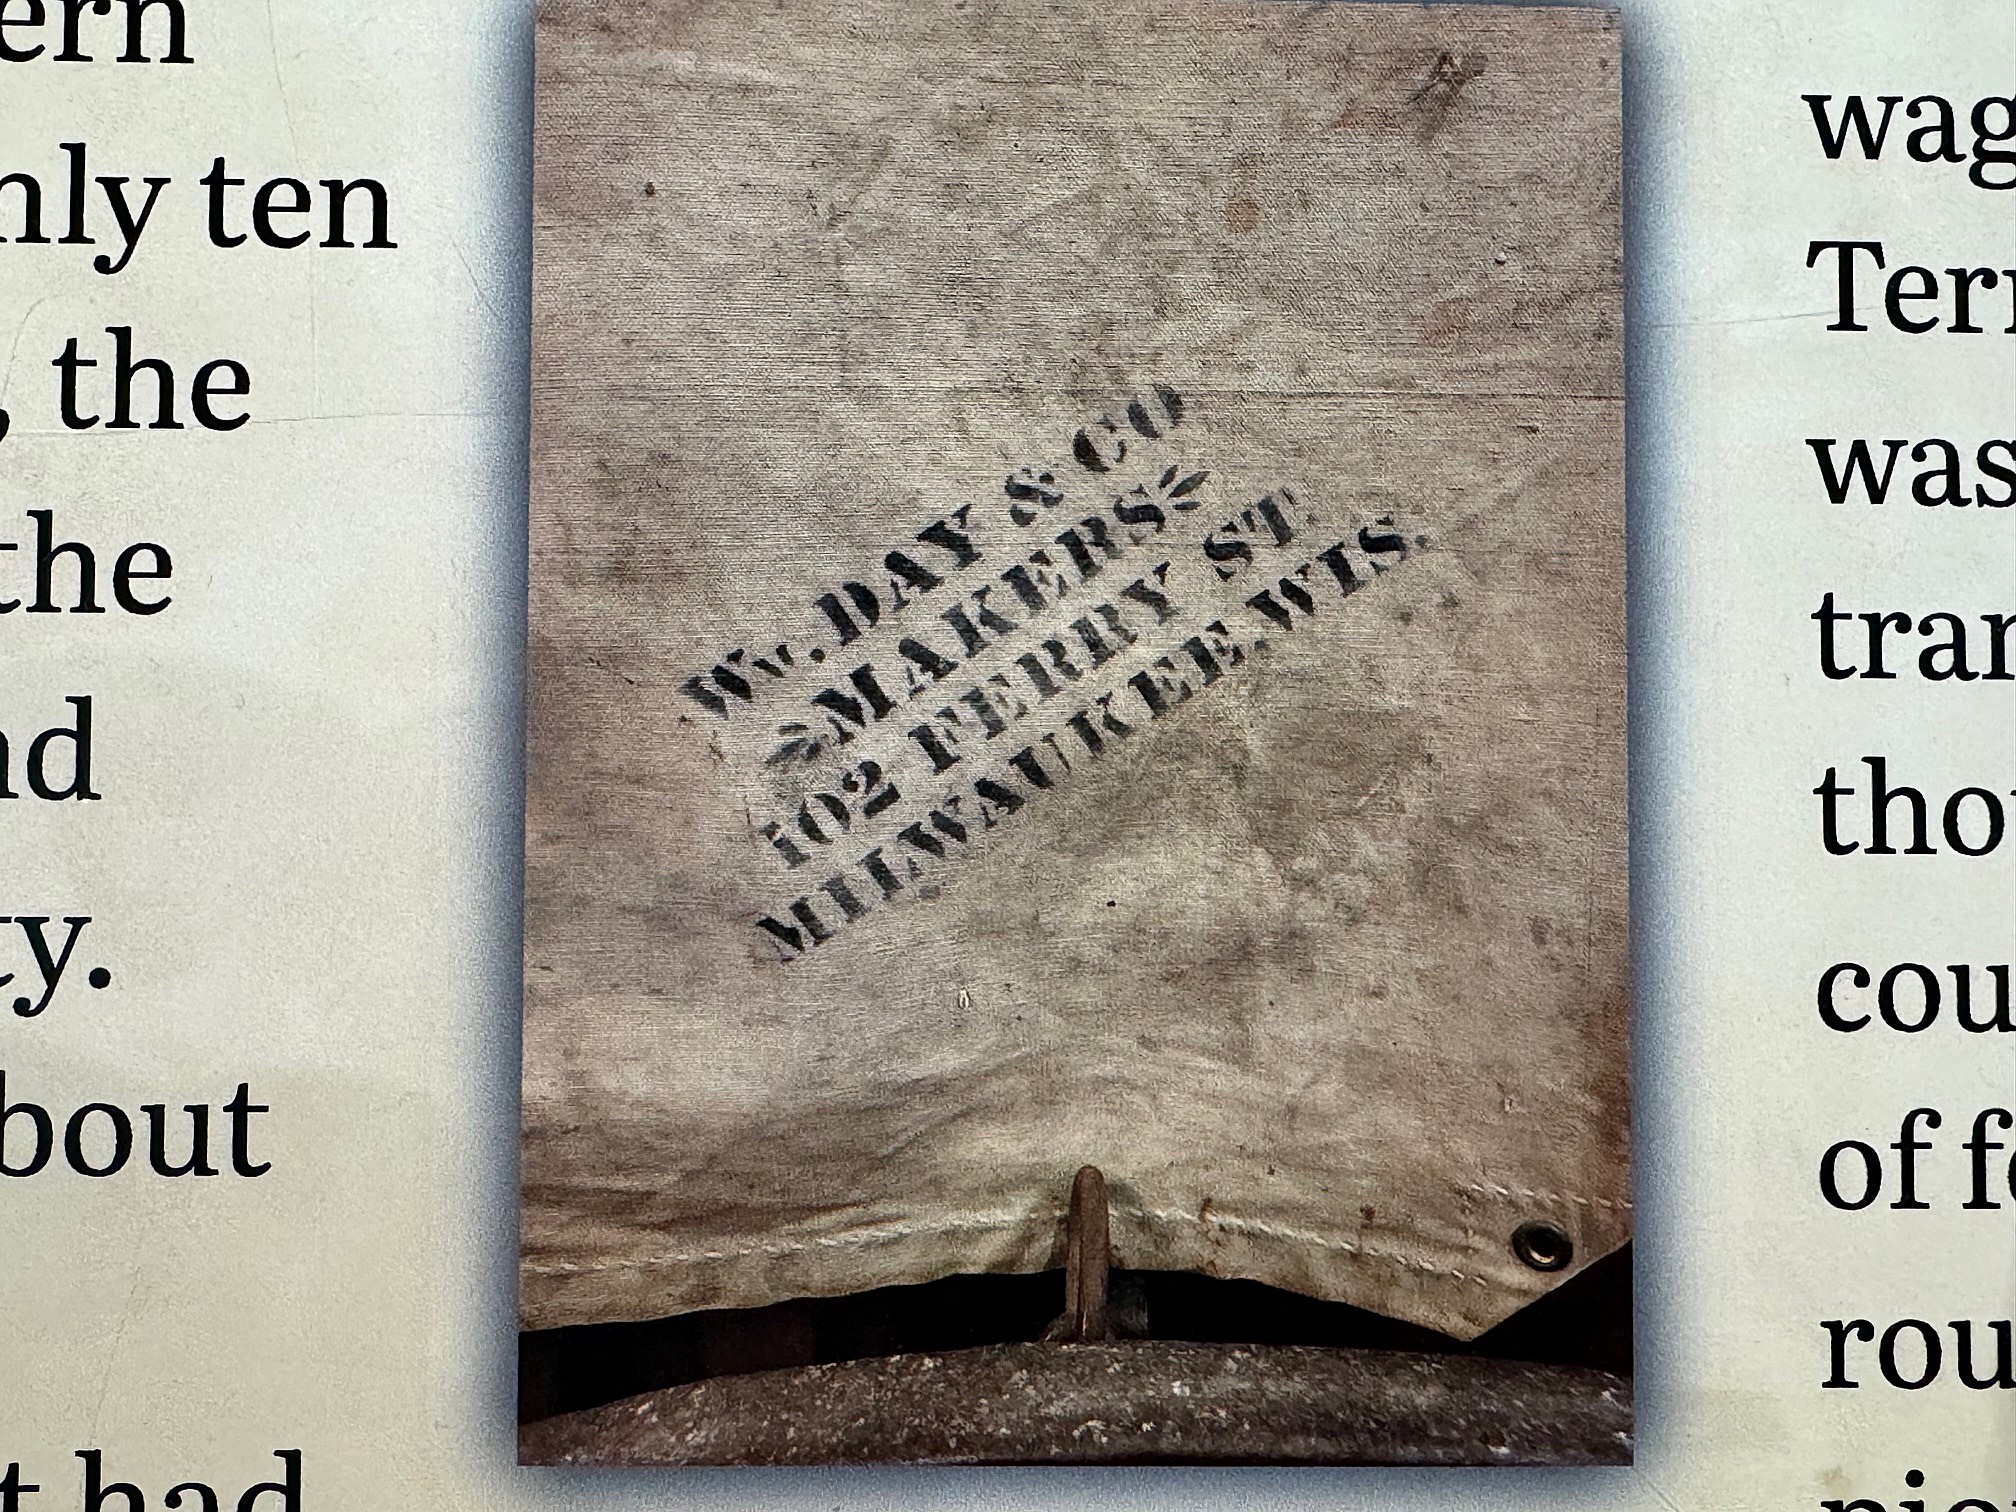 ern
nly ten
, the
the
nd
ty.
bout
t had
Wm. DAY & CO
MAKERS
102 FERRY ST.
MILWAUKEE. WIS.
wag
Terr
was
tran
tho
cou
of fo
rou